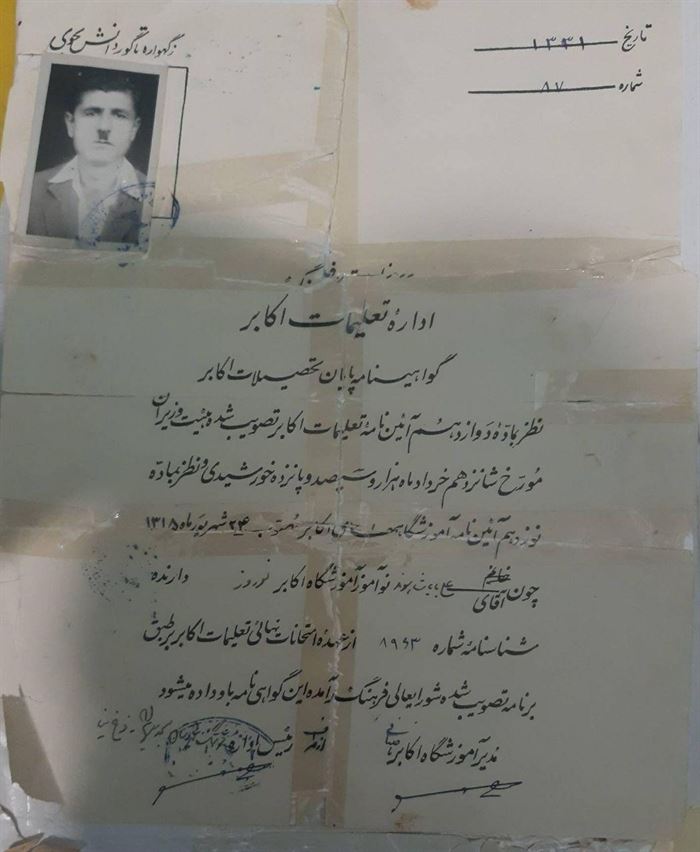 ز گهواره تا گور دانش بجوی
تاریخ ۱۳۳۱
شماره ۸۷
وزارت فرهنگ
ادارهٔ تعلیمات اکابر
گواهینامه پایان تحصیلات اکابر
نظر بمادّهٔ دوازدهم آئین نامهٔ تعلیمات اکابر تصویب شده هیئت وزیران
مورّخ شانزدهم خرداد ماه هزار و سیصد و پانزده خورشیدی و نظر بمادّه
نوزدهم آئین نامه آموزشگاههای اکابر مصوب ۲۴ شهریور ماه ۱۳۱۵
چون خانم آقای نوآموز آموزشگاه اکابر نوروز دارنده
شناسنامهٔ شماره ۸۹۶۳ از عهدهٔ امتحانات نهائی تعلیمات اکابر بر طبق
برنامه تصویب شده شورایعالی فرهنگ برآمده این گواهی نامه باو داده میشود
مدیر آموزشگاه اکابر
رئیس اداره